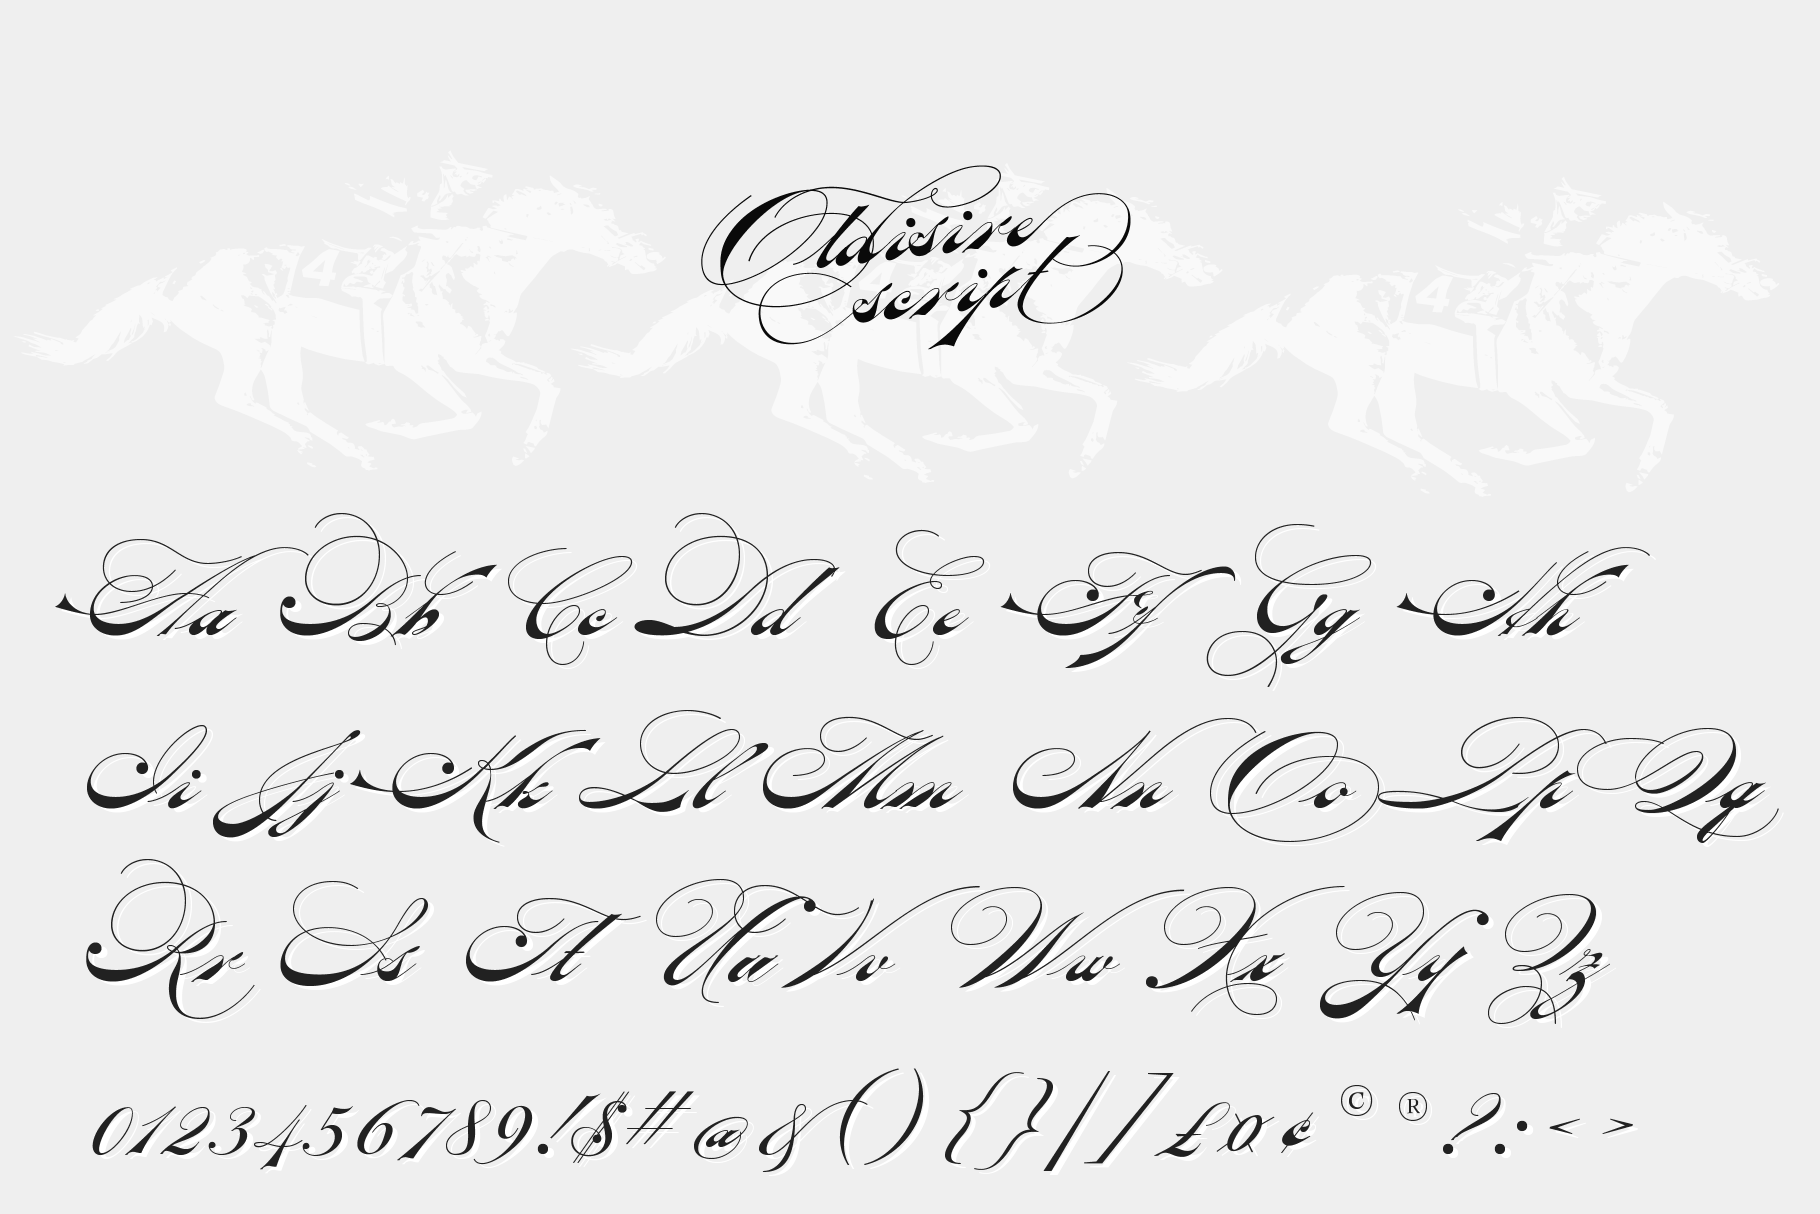 Oldisire
script
Aa Bb Cc Dd Ee Ff Gg Hh
Ii Jj Kk Ll Mm Nn Oo Pp Qq
Rr Ss Tt Uu Vv Ww Xx Yy Zz
0123456789.!$#@&(){}/]£¤¢©®?:<>